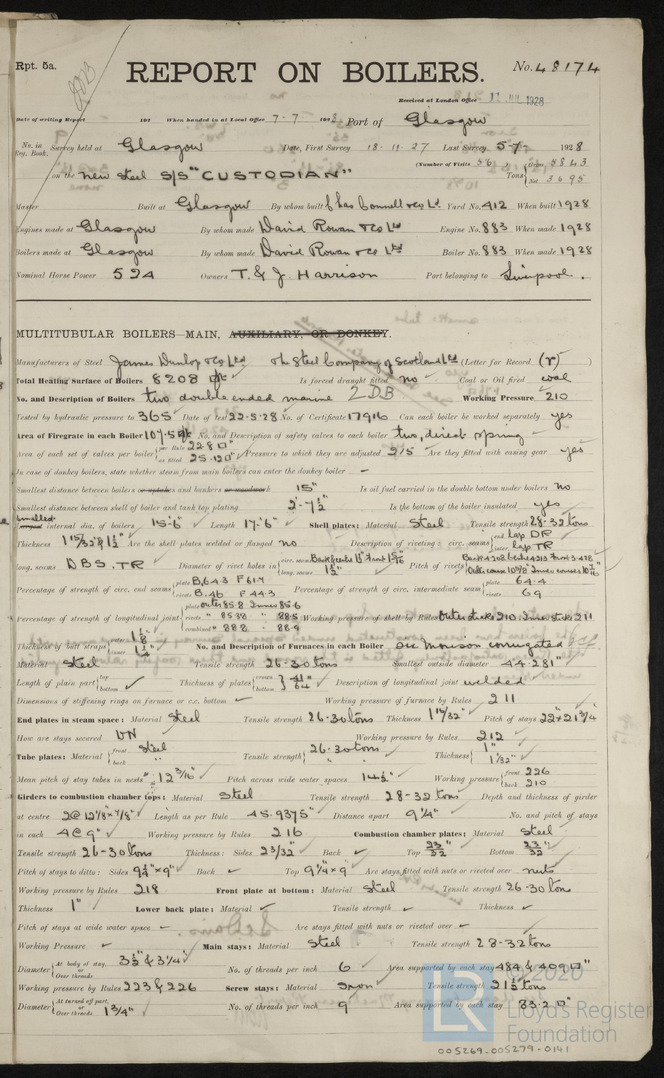 Rpt. 5a.
REPORT ON BOILERS.
No. 48174
Received at London Office 11 JUL 1928
Date of writing Report 192 When handed in at Local Office 7-7- 1928 Port of Glasgow
No. in Reg. Book. Survey held at Glasgow Date, First Survey 18-11-27 Last Survey 5-7- 1928
on the new steel S/S "CUSTODIAN" (Number of Visits 56) Tons Gross 5843 Net 3695
Master Built at Glasgow By whom built Chas Connell & Co Ld. Yard No. 412 When built 1928
Engines made at Glasgow By whom made David Rowan & Co Ltd Engine No. 883 When made 1928
Boilers made at Glasgow By whom made David Rowan & Co Ltd Boiler No. 883 When made 1928
Nominal Horse Power 594 Owners T. & J Harrison Port belonging to Liverpool.
MULTITUBULAR BOILERS MAIN, AUXILIARY, OR DONKEY.
Manufacturers of Steel James Dunlop & Co Ltd The Steel Company of Scotland Ltd (Letter for Record (r) )
Total Heating Surface of Boilers 8208 Is forced draught fitted no Coal or Oil fired coal
No. and Description of Boilers two double ended marine 2DB Working Pressure 210
Tested by hydraulic pressure to 365 Date of test 22.5.28 No. of Certificate 17916 Can each boiler be worked separately yes
Area of Firegrate in each Boiler 107.5 No. and Description of safety valves to each boiler two, direct spring
Area of each set of valves per boiler per Rule 22.8 □" as fitted 25.12 □" Pressure to which they are adjusted 215 Are they fitted with easing gear yes
In case of donkey boilers, state whether steam from main boilers can enter the donkey boiler –
Smallest distance between boilers or uptakes and bunkers or woodwork 15" Is oil fuel carried in the double bottom under boilers no
Smallest distance between shell of boiler and tank top plating 2'-7½" Is the bottom of the boiler insulated yes
Smallest internal dia. of boilers 15'-6" Length 17'-6" Shell plates: Material Steel Tensile strength 28-32 tons
Thickness Are the shell plates welded or flanged no Description of riveting: circ. seams end lap DR inter. lap TR
long. seams DBS. TR Diameter of rivet holes in circ. seams long. seams 1½" Pitch of rivets
Percentage of strength of circ. end seams plate B. 64.3 F 61.4 rivets B. 46 F 44.3 Percentage of strength of circ. intermediate seam plate 64.4 rivets 69
Percentage of strength of longitudinal joint plate outer 85.8 Inner 85.6 rivets " 85.88 " 88.5 combined " 88.8 " 88.9 Working pressure of shell by Rules outer stks 210 Inner stks 211
Thickness of butt straps outer 1⅛ inner 1¼" No. and Description of Furnaces in each Boiler six Morison corrugated
Material Steel Tensile strength 26-30 tons Smallest outside diameter 44.281"
Length of plain part top bottom Thickness of plates crown bottom 41/64" Description of longitudinal joint welded
Dimensions of stiffening rings on furnace or c.c. bottom Working pressure of furnace by Rules 211
End plates in steam space: Material Steel Tensile strength 26-30 tons Thickness Pitch of stays 22" x 21¾"
How are stays secured DN Working pressure by Rules 212
Tube plates: Material front back Steel Tensile strength 26-30 tons Thickness 1" 1/32"
Mean pitch of stay tubes in nests 12 3/16" Pitch across wide water spaces 14½" Working pressure front 226 back 210
Girders to combustion chamber tops: Material Steel Tensile strength 28-32 tons Depth and thickness of girder
at centre 2@ 12⅛" x ⅞" Length as per Rule 45.9375" Distance apart 9¼" No. and pitch of stays
in each 4 @ 9" Working pressure by Rules 216 Combustion chamber plates: Material Steel
Tensile strength 26-30 tons Thickness: Sides 23/32" Back Top 23/32" Bottom 23/32"
Pitch of stays to ditto: Sides 9¼" x 9" Back Top 9¼" x 9" Are stays fitted with nuts or riveted over nuts
Working pressure by Rules 218 Front plate at bottom: Material Steel Tensile strength 26-30 ton
Thickness 1" Lower back plate: Material Tensile strength Thickness
Pitch of stays at wide water space Are stays fitted with nuts or riveted over
Working Pressure Main stays: Material Steel Tensile strength 28-32 tons
Diameter At body of stay, or Over threads 3½" & 3¼" No. of threads per inch 6 Area supported by each stay 484 & 409 □"
Working pressure by Rules 223 & 226 Screw stays: Material Iron Tensile strength 21½ tons
Diameter At turned off part, or Over threads 1¾" No. of threads per inch 9 Area supported by each stay 83.2 □"
© 2020
LR
Lloyd's Register
Foundation
005269-005279-0141